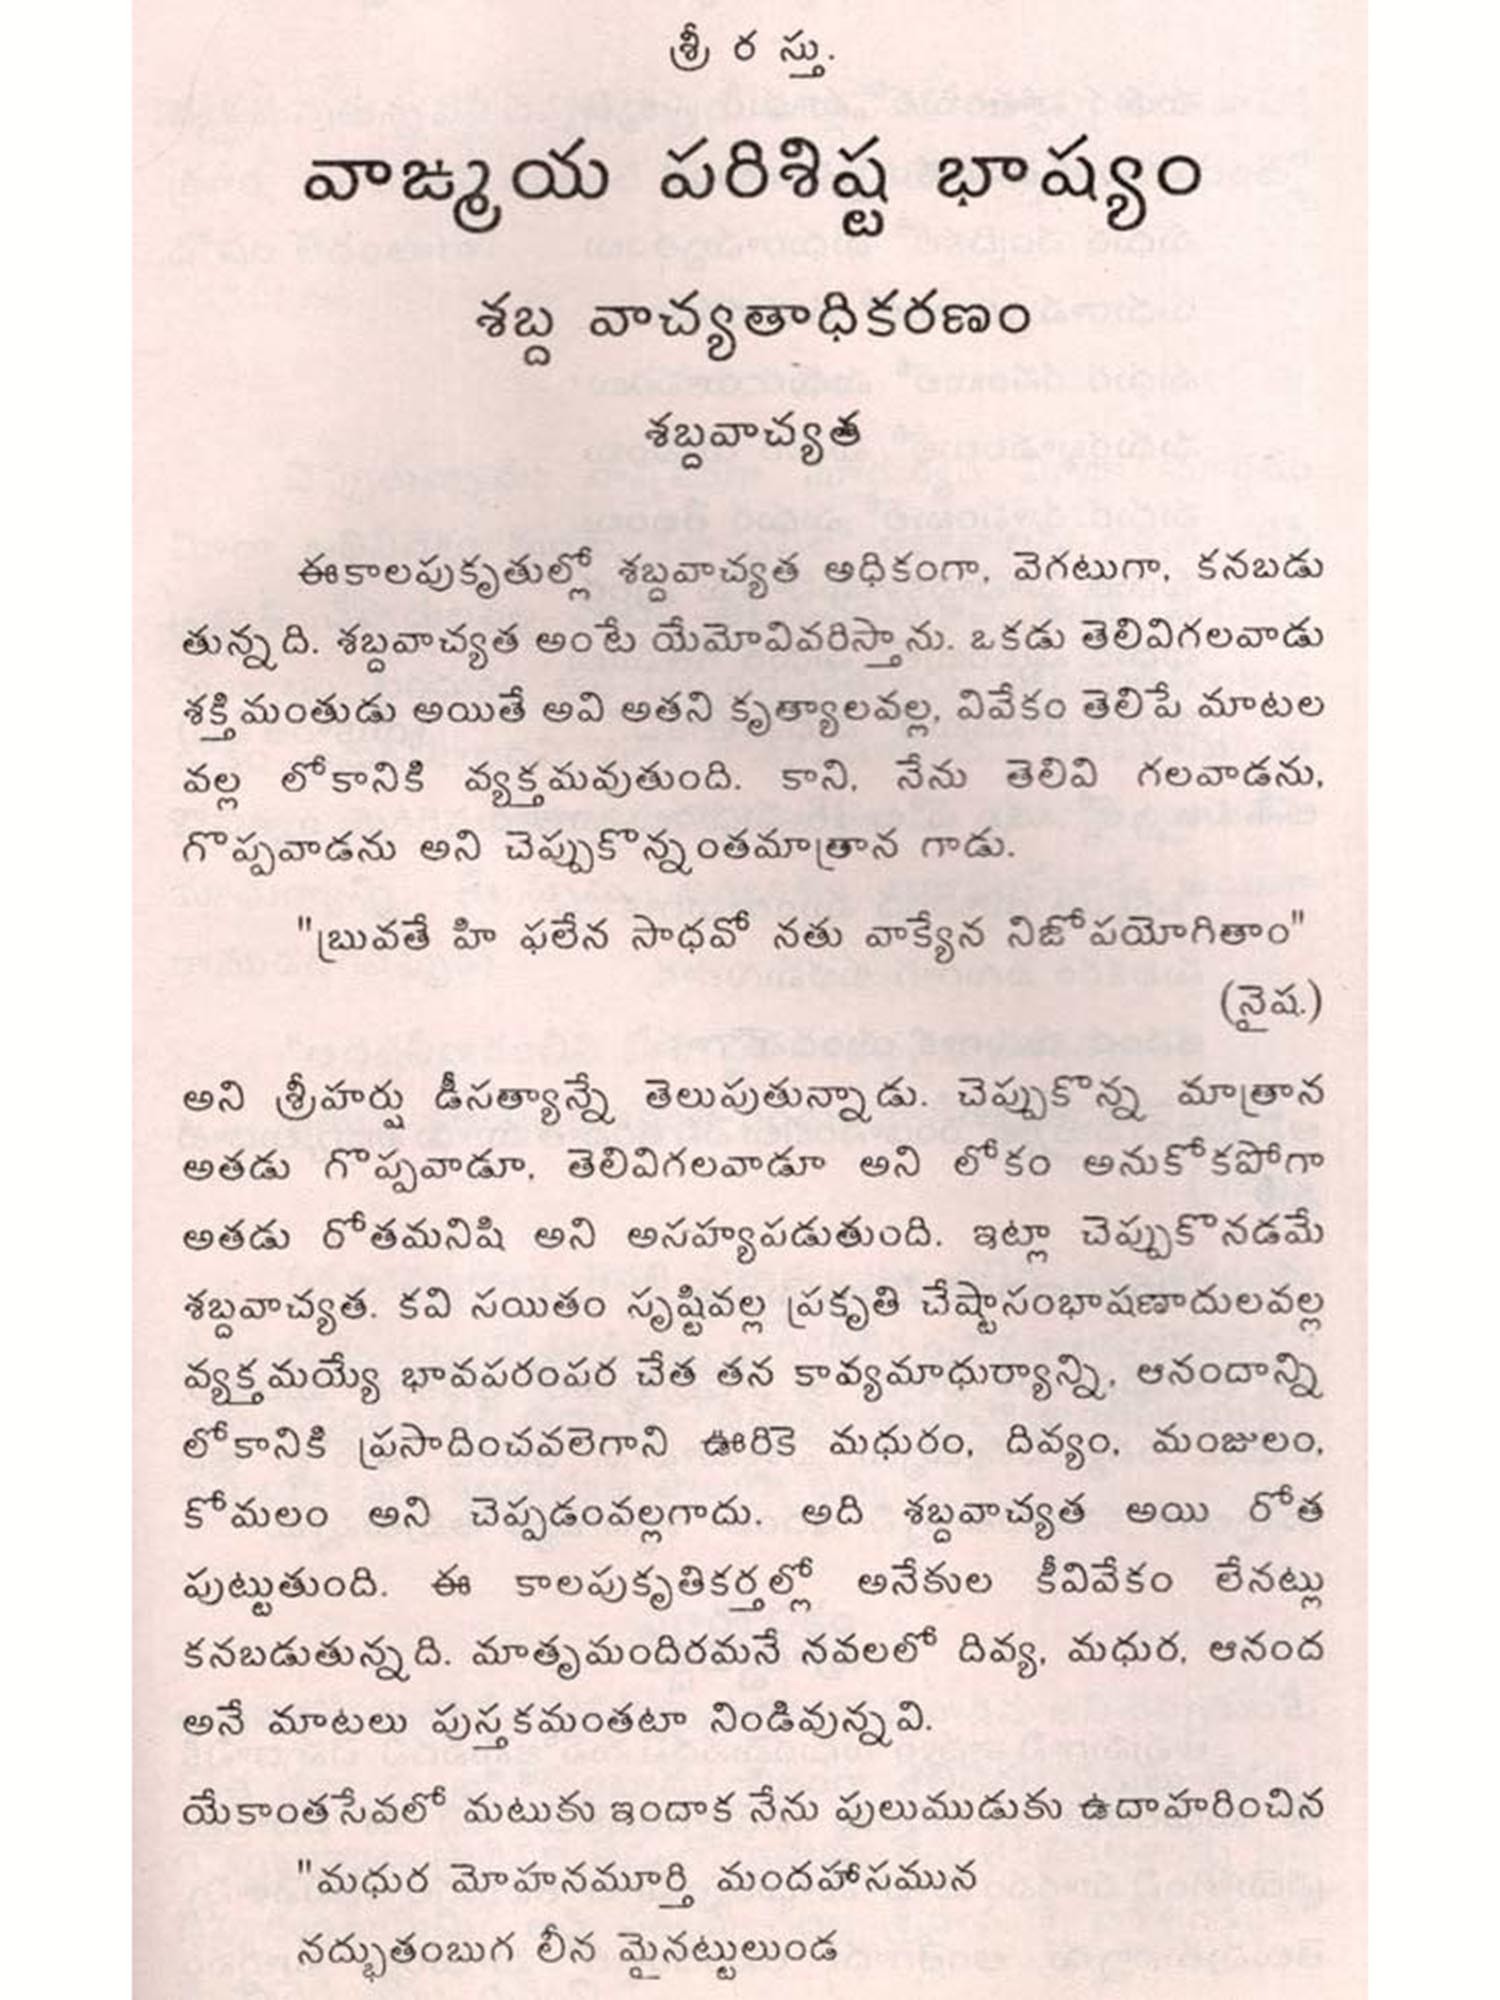 శ్రీ ర స్తు.
వాఙ్మయ పరిశిష్ట భాష్యం
శబ్ద వాచ్యతాధికరణం
శబ్దవాచ్యత
ఈకాలపుకృతుల్లో శబ్దవాచ్యత అధికంగా, వెగటుగా, కనబడు
తున్నది. శబ్దవాచ్యత అంటే యేమోవివరిస్తాను. ఒకడు తెలివిగలవాడు
శక్తిమంతుడు అయితే అవి అతని కృత్యాలవల్ల, వివేకం తెలిపే మాటల
వల్ల లోకానికి వ్యక్తమవుతుంది. కాని, నేను తెలివి గలవాడను,
గొప్పవాడను అని చెప్పుకొన్నంతమాత్రాన గాదు.
"బ్రువతే హి ఫలేన సాధవో నతు వాక్యేన నిజోపయోగితాం"
(నైష.)
అని శ్రీహర్షు డీసత్యాన్నే తెలుపుతున్నాడు. చెప్పుకొన్న మాత్రాన
అతడు గొప్పవాడూ, తెలివిగలవాడూ అని లోకం అనుకోకపోగా
అతడు రోతమనిషి అని అసహ్యపడుతుంది. ఇట్లా చెప్పుకొనడమే
శబ్దవాచ్యత. కవి సయితం సృష్టివల్ల ప్రకృతి చేష్టాసంభాషణాదులవల్ల
వ్యక్తమయ్యే భావపరంపర చేత తన కావ్యమాధుర్యాన్ని, ఆనందాన్ని
లోకానికి ప్రసాదించవలెగాని ఊరికె మధురం, దివ్యం, మంజులం,
కోమలం అని చెప్పడంవల్లగాదు. అది శబ్దవాచ్యత అయి రోత
పుట్టుతుంది. ఈ కాలపుకృతికర్తల్లో అనేకుల కీవివేకం లేనట్లు
కనబడుతున్నది. మాతృమందిరమనే నవలలో దివ్య, మధుర, ఆనంద
అనే మాటలు పుస్తకమంతటా నిండివున్నవి.
యేకాంతసేవలో మటుకు ఇందాక నేను పులుముడుకు ఉదాహరించిన
"మధుర మోహనమూర్తి మందహాసమున
నద్భుతంబుగ లీన మైనట్టులుండ